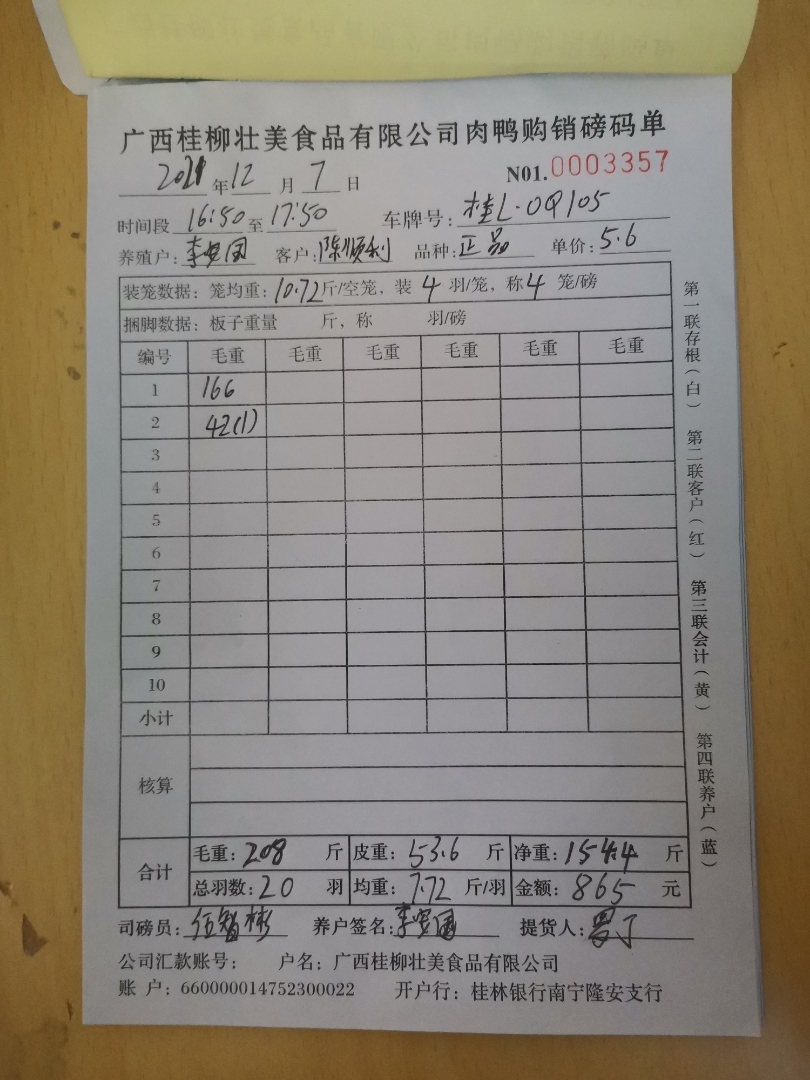 广西桂柳壮美食品有限公司肉鸭购销磅码单
2021年12月7日 N01.0003357
时间段 16:50 至 17:50 车牌号:桂L·0Q105
养殖户:李安国 客户:陈顺利 品种:正品 单价:5.6
装笼数据:笼均重:10.72斤/空笼,装4羽/笼,称4笼/磅
捆脚数据:板子重量 斤,称 羽/磅
编号 毛重 毛重 毛重 毛重 毛重 毛重
1 166
2 42(1)
3
4
5
6
7
8
9
10
小计
核算
合计 毛重:208斤 皮重:53.6斤 净重:154.4斤
总羽数:20羽 均重:7.72斤/羽 金额:865元
司磅员: 养户签名:李安国 提货人:
公司汇款账号: 户名:广西桂柳壮美食品有限公司
账 户:660000014752300022 开户行:桂林银行南宁隆安支行
第一联存根(白) 第二联客户(红) 第三联会计(黄) 第四联养户(蓝)